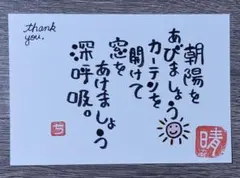 thank
you.
朝陽を
あびましょう
カーテンを
開けて
窓を
あけましょう
深呼吸。
ち
晴